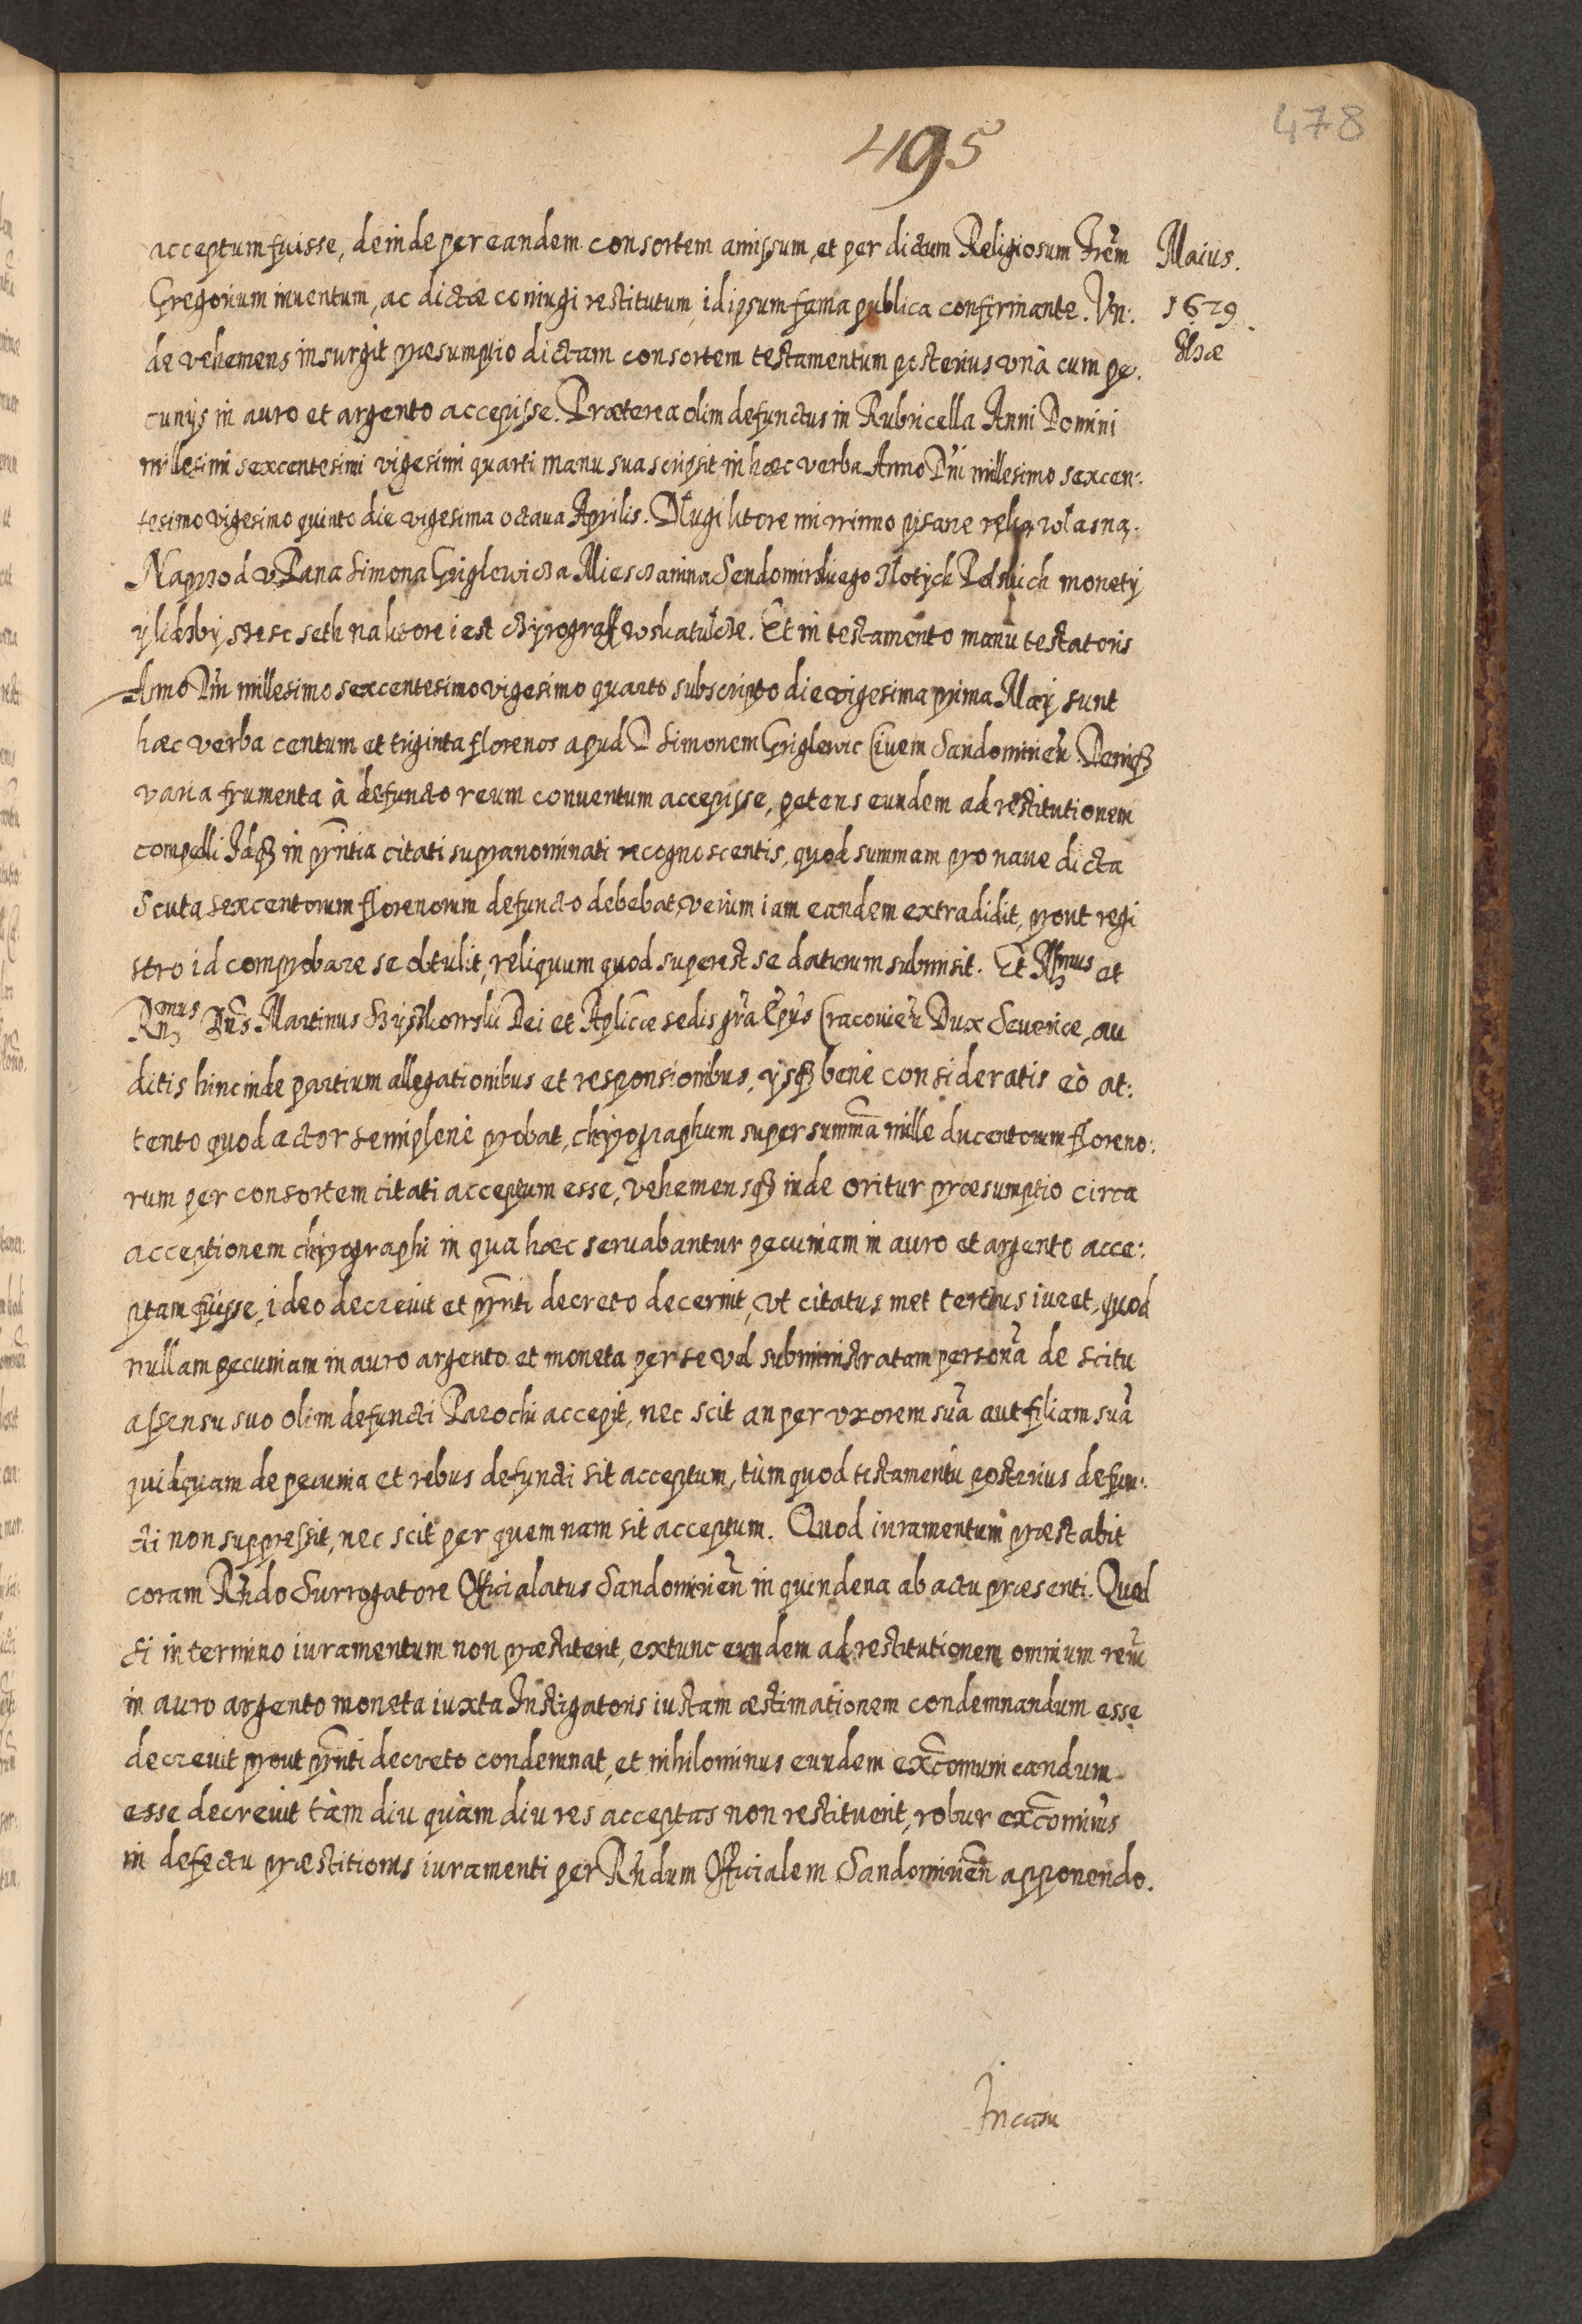 478
495
acceptum fuisse, deinde per eandem consortem amissum, et per dictum Religiosum Frem̃
Maius.
Gregorium inuentum, ac dictæ coniugi restitutum, id ipsum fama publica confirmante. Vn:
1629.
de vehemens insurgit præsumptio dictam consortem testamentum posterius vnà cum pe.
cunijs in auro et argento accepisse. Præterea olim defunctus in Rubricella Anni Domini
millesimi sexcentesimi vigesimi quarti manu sua scripsit in hæc verba Anno Dñi millesimo sexcen:
tesimo vigesimo quinto die vigesima octaua Aprilis. Długi ktore mi winno pisane ręką własną.
Naprzod v Pana Simona Griglewicza Miesczanina Sendomirskiego Złotych Polskich monety
y liczby szesc seth na ktore iest chyrograff w skatulcze. Et in testamento manu testatoris
Anno Dñi millesimo sexcentesimo vigesimo quarto subscripto die vigesima prima Maij sunt
hæc verba centum et triginta florenos apud D Simonem Griglewic Ciuem Sandomirień. Deniq3
varia frumenta à defuncto reum conuentum accepisse, petens eundem ad restitutionem
compelli Idq3 in pñtia citati supranominati recognoscentis, quod summam pro naue dicta
Scuta sexcentorum florenorum defuncto debebat, verùm iam eandem extradidit, prout regi
stro id comprobare se obtulit, reliquum quod superest se daturum submisit. Et Illmus et
Rñdmus Dñs Martinus Szyszkowski Dei et Aplicæ sedis grã Epũs Cracouień Dux Seueriæ, au
ditis hincinde partium allegationibus et responsionibus, ijsq3 benè consideratis eò at:
tento quod actor semiplenè probat, chyrographum super summã mille ducentorum floreno:
rum per consortem citati acceptum esse, vehemensq3 inde oritur præsumptio circa
acceptionem chyrographi in qua hæc seruabantur pecuniam in auro et argento acce:
ptam fuisse, ideo decreuit et pñti decreto decernit, vt citatus met tertius iuret, quod
nullam pecuniam in auro argento et moneta per se vel subministratam personã de scitu
assensu suo olim defuncti Parochi accepit, nec scit an per vxorem suã aut filiam suã
quidquam de pecunia et rebus defuncti sit acceptum, tùm quod testamentũ posterius defun:
cti non suppressit, nec scit per quemnam sit acceptum. Quod iuramentum præstabit
coram Rñdo Surrogatore Officialatus Sandomirień in quindena ab actu præsenti. Quod
si in termino iuramentum non præstiterit, extunc eundem ad restitutionem omnium rerũ
in auro argento moneta iuxta Instigatoris iustam æstimationem condemnandum esse
decreuit prout pñti decreto condemnat, et nihilominus eundem excõmunicandum
esse decreuit tàm diu quàm diu res acceptas non restituerit, robur excõminis
in defectu præstitionis iuramenti per Rñdum Officialem Sandomirień apponendo.
In casu